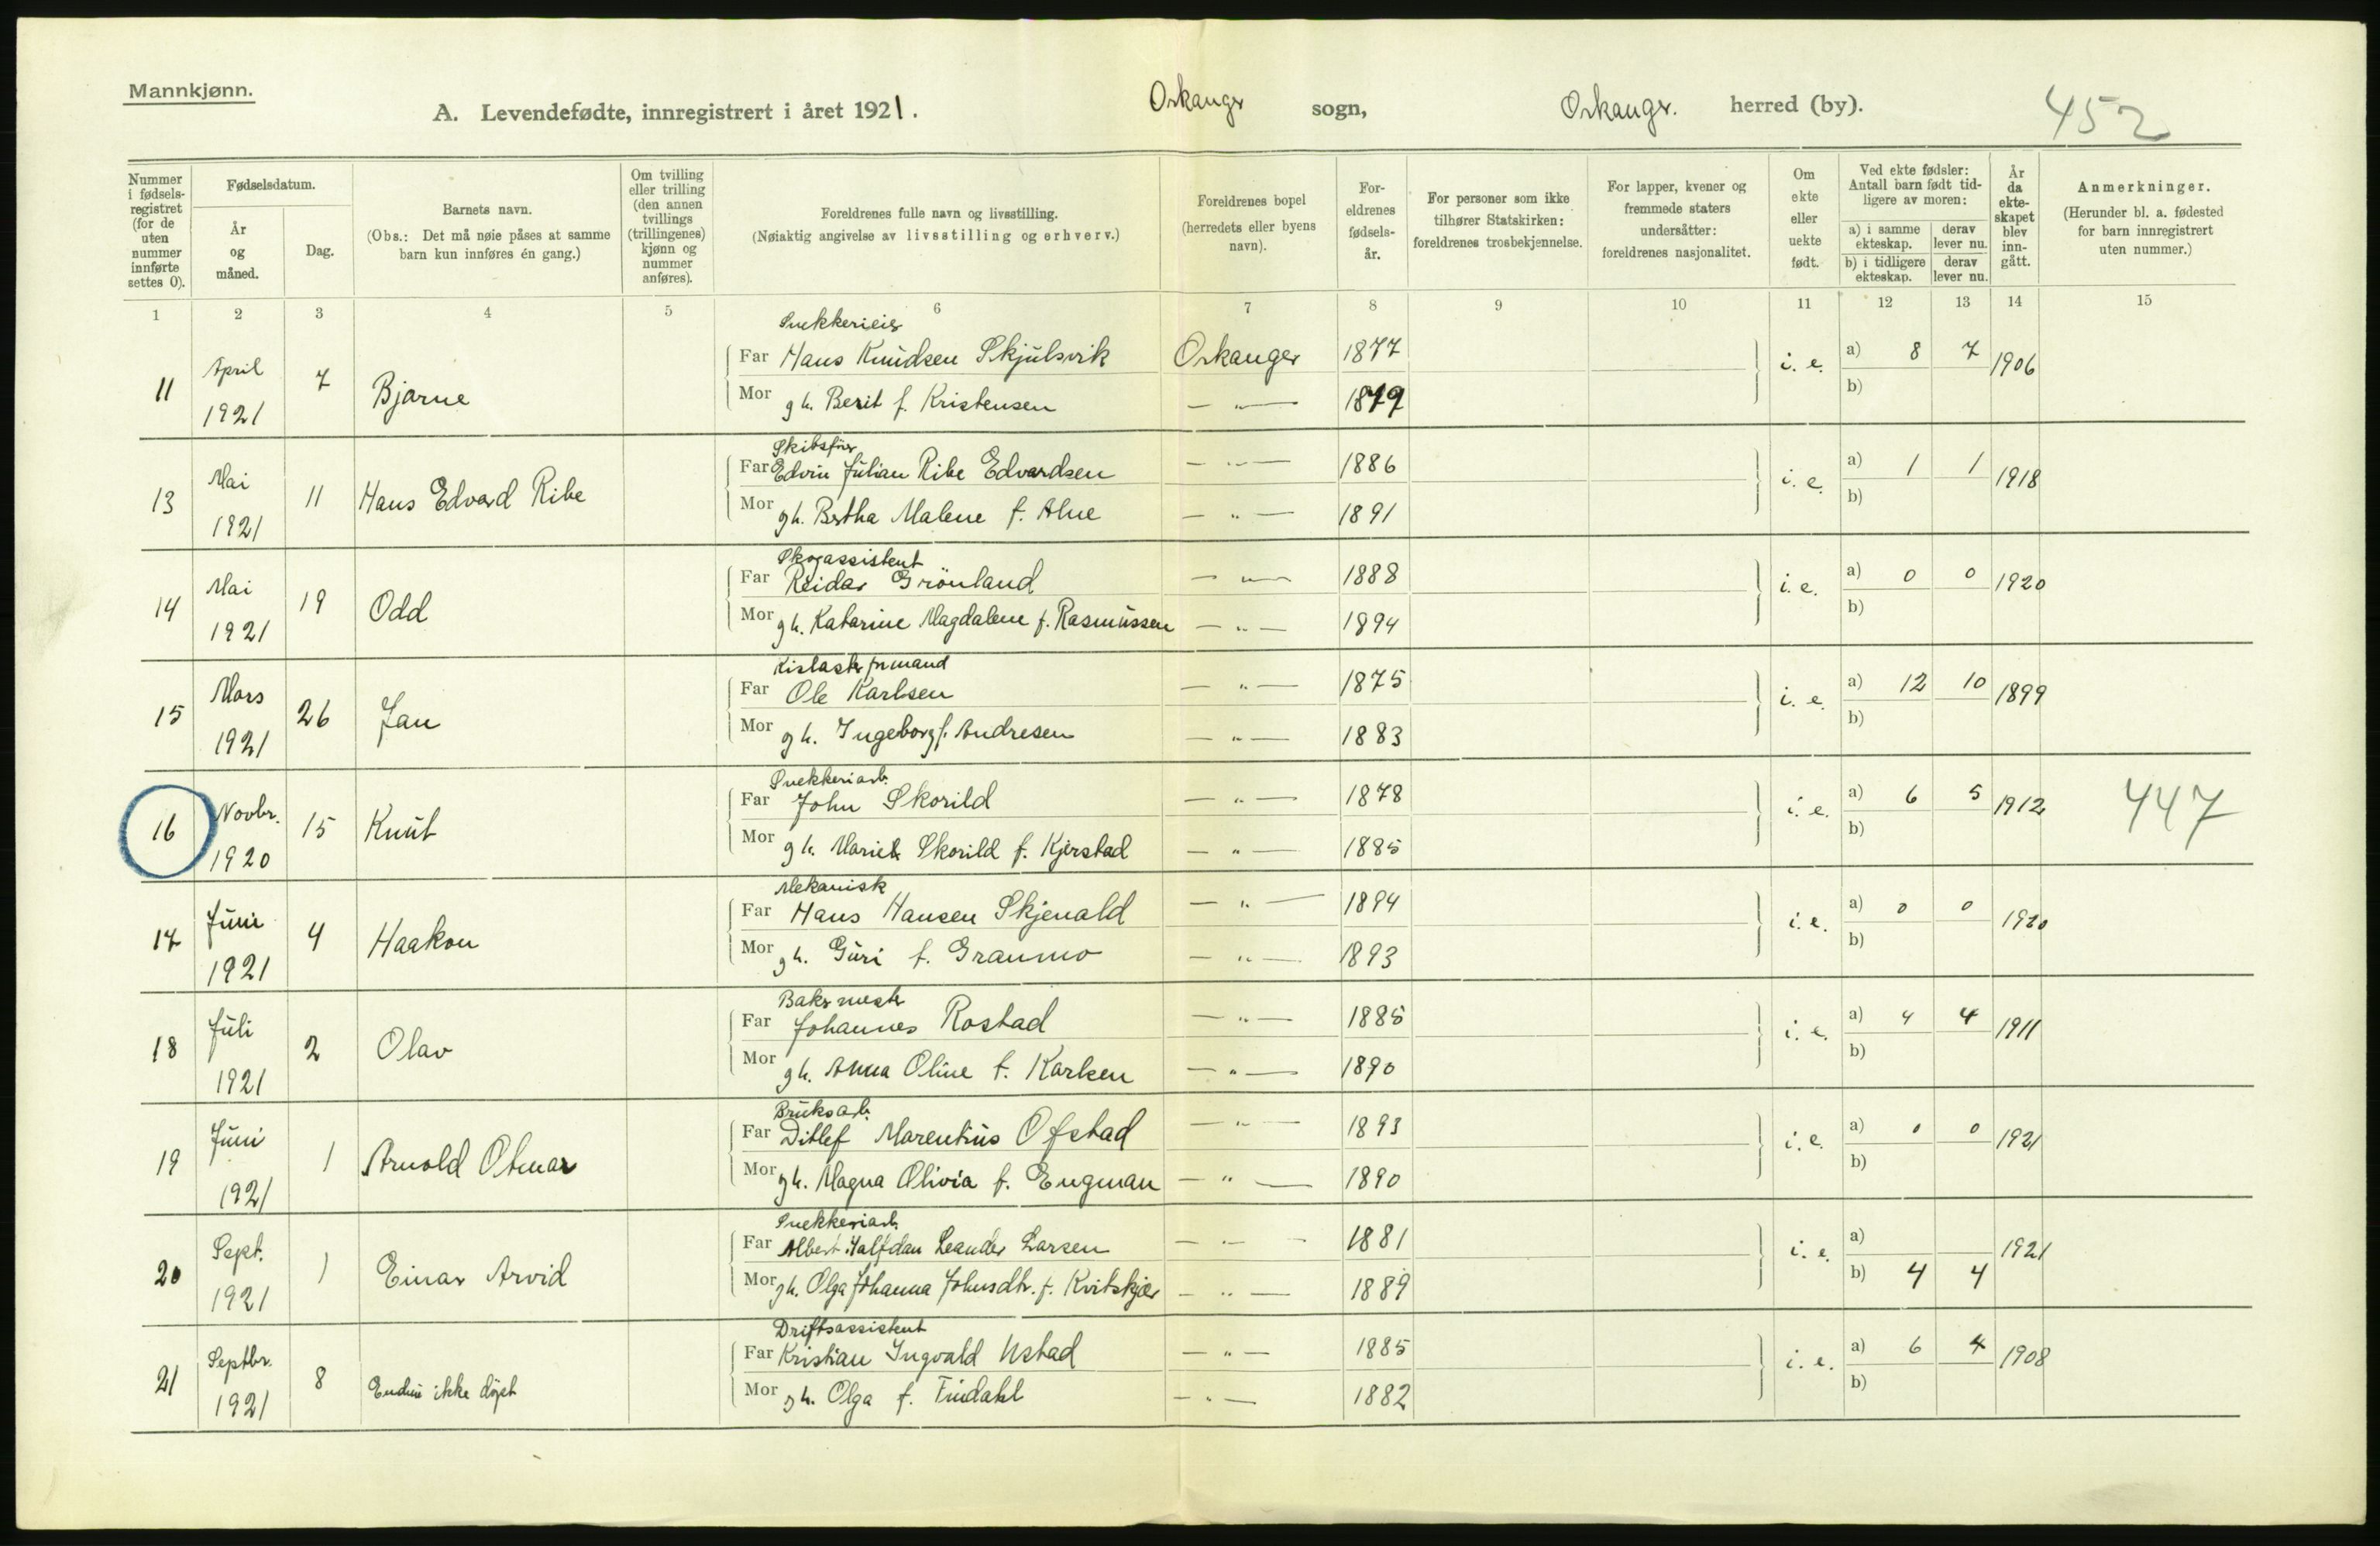 Mannkjønn.
A. Levendefødte, innregistrert i året 1921.
Orkanger sogn,
Orkanger. herred (by).
452
Nummer i fødselsregistret (for de uten nummer innførte settes 0).
Fødselsdatum.
År og måned.
Dag.
Barnets navn.
(Obs.: Det må nøie påses at samme barn kun innføres én gang.)
Om tvilling eller trilling (den annen tvillings (trillingenes) kjønn og nummer anføres).
Foreldrenes fulle navn og livsstilling.
(Nøiaktig angivelse av livsstilling og erhverv.)
Foreldrenes bopel
(herredets eller byens navn).
Foreldrenes fødselsår.
For personer som ikke tilhører Statskirken: foreldrenes trosbekjennelse.
For lapper, kvener og fremmede staters undersåtter: foreldrenes nasjonalitet.
Om ekte eller uekte født.
Ved ekte fødsler: Antall barn født tidligere av moren:
a) i samme ekteskap.
derav lever nu.
b) i tidligere ekteskap.
derav lever nu.
År da ekteskapet blev inngått.
Anmerkninger.
(Herunder bl. a. fødested for barn innregistrert uten nummer.)
1 2 3 4 5 6 7 8 9 10 11 12 13 14 15
Snekkerieier
11 April 1921 7 Bjarne
Far Hans Knudsen Skjulsvik Orkanger 1877 i. e. a) 8 7 1906
Mor gh. Berit f. Kristensen — " — 1879 b)
Skibsfør
13 Mai 1921 11 Hans Edvard Ribe
Far Edvin Julian Ribe Edvardsen — " — 1886 i. e. a) 1 1 1918
Mor gh. Bertha Malene f. Alne — " — 1891 b)
Skogassistent
14 Mai 1921 19 Odd
Far Reidar Grönland — " — 1888 i. e. a) 0 0 1920
Mor gh. Katarine Magdalene f. Rasmussen — " — 1894 b)
15 Mars 1921 26 Jan
Far Ole Karlsen — " — 1875 i. e. a) 12 10 1899
Mor gh. Ingeborg f. Andresen — " — 1883 b)
Snekkeriarb.
16 Novbr. 1920 15 Knut
Far John Skorild — " — 1878 i. e. a) 6 5 1912 447
Mor gh. Marie Skorild f. Kjerstad — " — 1885 b)
Mekanisk
17 Juni 1921 4 Haakon
Far Hans Hansen Skjenald — " — 1894 i. e. a) 0 0 1920
Mor gh. Guri f. Granmo — " — 1893 b)
Bakermester
18 Juli 1921 2 Olav
Far Johannes Rostad — " — 1885 i. e. a) 4 4 1911
Mor gh. Anna Oline f. Karlsen — " — 1890 b)
Bruksarb.
19 Juni 1921 1 Arnold Otmar
Far Ditlef Marentius Ofstad — " — 1893 i. e. a) 0 0 1921
Mor gh. Magna Olivia f. Engman — " — 1890 b)
Snekkeriarb.
20 Sept. 1921 1 Einar Arvid
Far Albert Halfdan Leander Larsen — " — 1881 i. e. a) 1921
Mor gh. Olga Johanna Johnsdtr. f. Kvitskjær — " — 1889 b) 4 4
Driftsassistent
21 Septbr. 1921 8 Endnu ikke døpt
Far Kristian Ingvald Ustad — " — 1885 i. e. a) 6 4 1908
Mor gh. Olga f. Findahl — " — 1882 b)